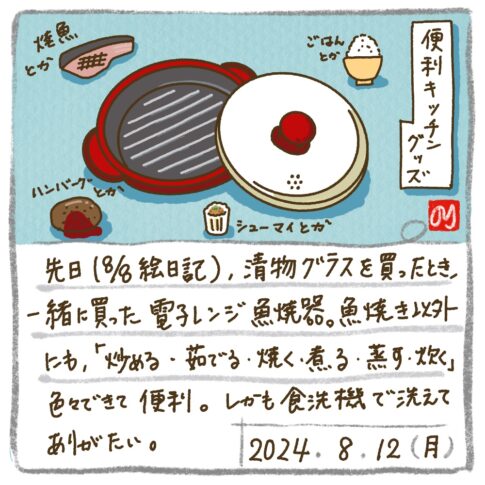 便利キッチン
グッズ
焼魚
とか
ごはん
とか
ハンバーグとか
シューマイとか
先日(8/8絵日記)、漬物グラスを買ったとき、
一緒に買った電子レンジ魚焼器。魚焼き以外
にも、「炒める・茹でる・焼く・煮る・蒸す・炊く」
色々できて便利。しかも食洗機で洗えて
ありがたい。
2024.8.12(月)